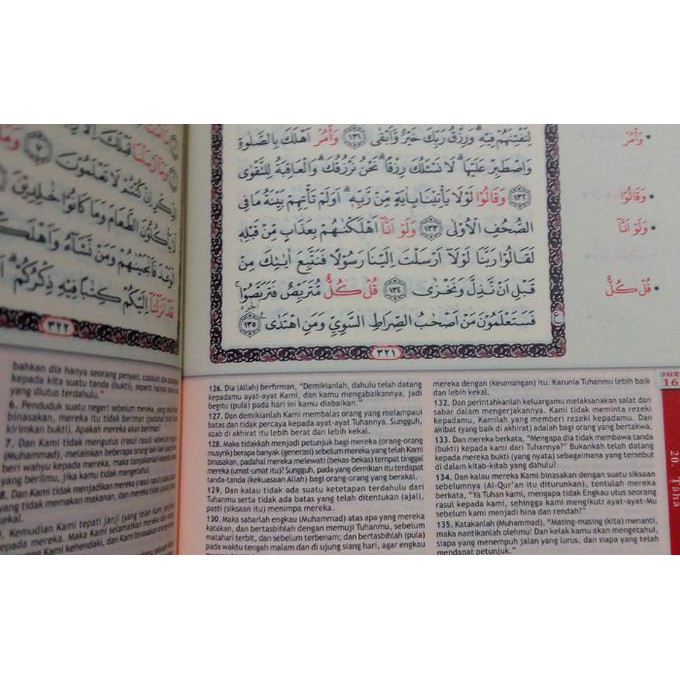 لِنَفْتِنَهُمْ فِيهِ ۗ وَرِزْقُ رَبِّكَ خَيْرٌ وَأَبْقَىٰ ۝١٣١ وَأْمُرْ أَهْلَكَ بِالصَّلٰوةِ
وَاصْطَبِرْ عَلَيْهَا ۗ لَا نَسْـَٔلُكَ رِزْقًا ۗ نَحْنُ نَرْزُقُكَ ۗ وَالْعَاقِبَةُ لِلتَّقْوٰى
۝١٣٢ وَقَالُوْا لَوْلَا يَأْتِيْنَا بِاٰيَةٍ مِّنْ رَّبِّهٖ ۗ اَوَلَمْ تَأْتِهِمْ بَيِّنَةُ مَا فِى
الصُّحُفِ الْاُوْلٰى ۝١٣٣ وَلَوْ اَنَّآ اَهْلَكْنٰهُمْ بِعَذَابٍ مِّنْ قَبْلِهٖ
لَقَالُوْا رَبَّنَا لَوْلَآ اَرْسَلْتَ اِلَيْنَا رَسُوْلًا فَنَتَّبِعَ اٰيٰتِكَ مِنْ
قَبْلِ اَنْ نَّذِلَّ وَنَخْزٰى ۝١٣٤ قُلْ كُلٌّ مُّتَرَبِّصٌ فَتَرَبَّصُوْا ۚ
فَسَتَعْلَمُوْنَ مَنْ اَصْحٰبُ الصِّرَاطِ السَّوِيِّ وَمَنِ اهْتَدٰى ۝١٣٥
٣٢١
• وَأْمُرْ
• وَقَالُوْا
• وَلَوْ اَنَّآ
• قُلْ كُلٌّ
ذِكْرِ اِنْ كُنْتُمْ لَا تَعْلَمُوْنَ
لَّا يَأْكُلُوْنَ الطَّعَامَ وَمَا كَانُوْا خٰلِدِيْنَ
فَاَنْجَيْنٰهُمْ وَمَنْ نَّشَاۤءُ وَاَهْلَكْنَا
اِلَيْكُمْ كِتٰبًا فِيْهِ ذِكْرُكُمْ
٣٢٢
bahkan dia hanya seorang penyair, cobalah dia
kepada kita suatu tanda (bukti), seperti halnya
yang diutus terdahulu."
6. Penduduk suatu negeri sebelum mereka, yang
binasakan, mereka itu tidak beriman (padahal
kirimkan bukti). Apakah mereka akan beriman?
7. Dan Kami tidak mengutus (rasul-rasul) sebelum
(Muhammad), melainkan beberapa orang laki-laki yang
beri wahyu kepada mereka, maka tanyakanlah kepada
yang berilmu, jika kamu tidak
8. Dan Kami tidak menjadikan mereka (rasul-rasul) suatu
yang tidak memakan makanan, dan mereka tidak
9. Kemudian Kami tepati janji (yang telah
kepada mereka. Maka Kami selamatkan mereka dan
yang Kami kehendaki, dan Kami binasakan
126. Dia (Allah) berfirman, "Demikianlah, dahulu telah datang
kepadamu ayat-ayat Kami, dan kamu mengabaikannya, jadi
begitu (pula) pada hari ini kamu diabaikan."
127. Dan demikianlah Kami membalas orang yang melampaui
batas dan tidak percaya kepada ayat-ayat Tuhannya. Sungguh,
azab di akhirat itu lebih berat dan lebih kekal.
128. Maka tidakkah menjadi petunjuk bagi mereka (orang-orang
musyrik) berapa banyak (generasi) sebelum mereka yang telah Kami
binasakan, padahal mereka melewati (bekas-bekas) tempat tinggal
mereka (umat-umat itu)? Sungguh, pada yang demikian itu terdapat
tanda-tanda (kekuasaan Allah) bagi orang-orang yang berakal.
129. Dan kalau tidak ada suatu ketetapan terdahulu dari
Tuhanmu serta tidak ada batas yang telah ditentukan (ajal),
pasti (siksaan itu) menimpa mereka.
130. Maka sabarlah engkau (Muhammad) atas apa yang mereka
katakan, dan bertasbihlah dengan memuji Tuhanmu, sebelum
matahari terbit, dan sebelum terbenam; dan bertasbihlah (pula)
pada waktu tengah malam dan di ujung siang hari, agar engkau
mereka dengan (kesenangan) itu. Karunia Tuhanmu lebih baik
dan lebih kekal.
132. Dan perintahkanlah keluargamu melaksanakan salat dan
sabar dalam mengerjakannya. Kami tidak meminta rezeki
kepadamu, Kamilah yang memberi rezeki kepadamu. Dan
akibat (yang baik di akhirat) adalah bagi orang yang bertakwa.
133. Dan mereka berkata, "Mengapa dia tidak membawa tanda
(bukti) kepada kami dari Tuhannya?" Bukankah telah datang
kepada mereka bukti (yang nyata) sebagaimana yang tersebut
di dalam kitab-kitab yang dahulu?
134. Dan kalau mereka Kami binasakan dengan suatu siksaan
sebelumnya (Al-Qur'an itu diturunkan), tentulah mereka
berkata, "Ya Tuhan kami, mengapa tidak Engkau utus seorang
rasul kepada kami, sehingga kami mengikuti ayat-ayat-Mu
sebelum kami menjadi hina dan rendah?"
135. Katakanlah (Muhammad), "Masing-masing (kita) menanti,
maka nantikanlah olehmu! Dan kelak kamu akan mengetahui,
siapa yang menempuh jalan yang lurus, dan siapa yang telah
mendapat petunjuk."
JUZ
16
20. Taha